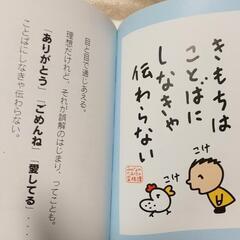 きもちは
ことばに
しなきゃ
伝わらない
こけ
こけ
目と目で通じあえる。
理想だけれど、それが誤解のはじまり、ってことも。
「ありがとう」「ごめんね」「愛してる」・・・
ことばにしなきゃ伝わらない。